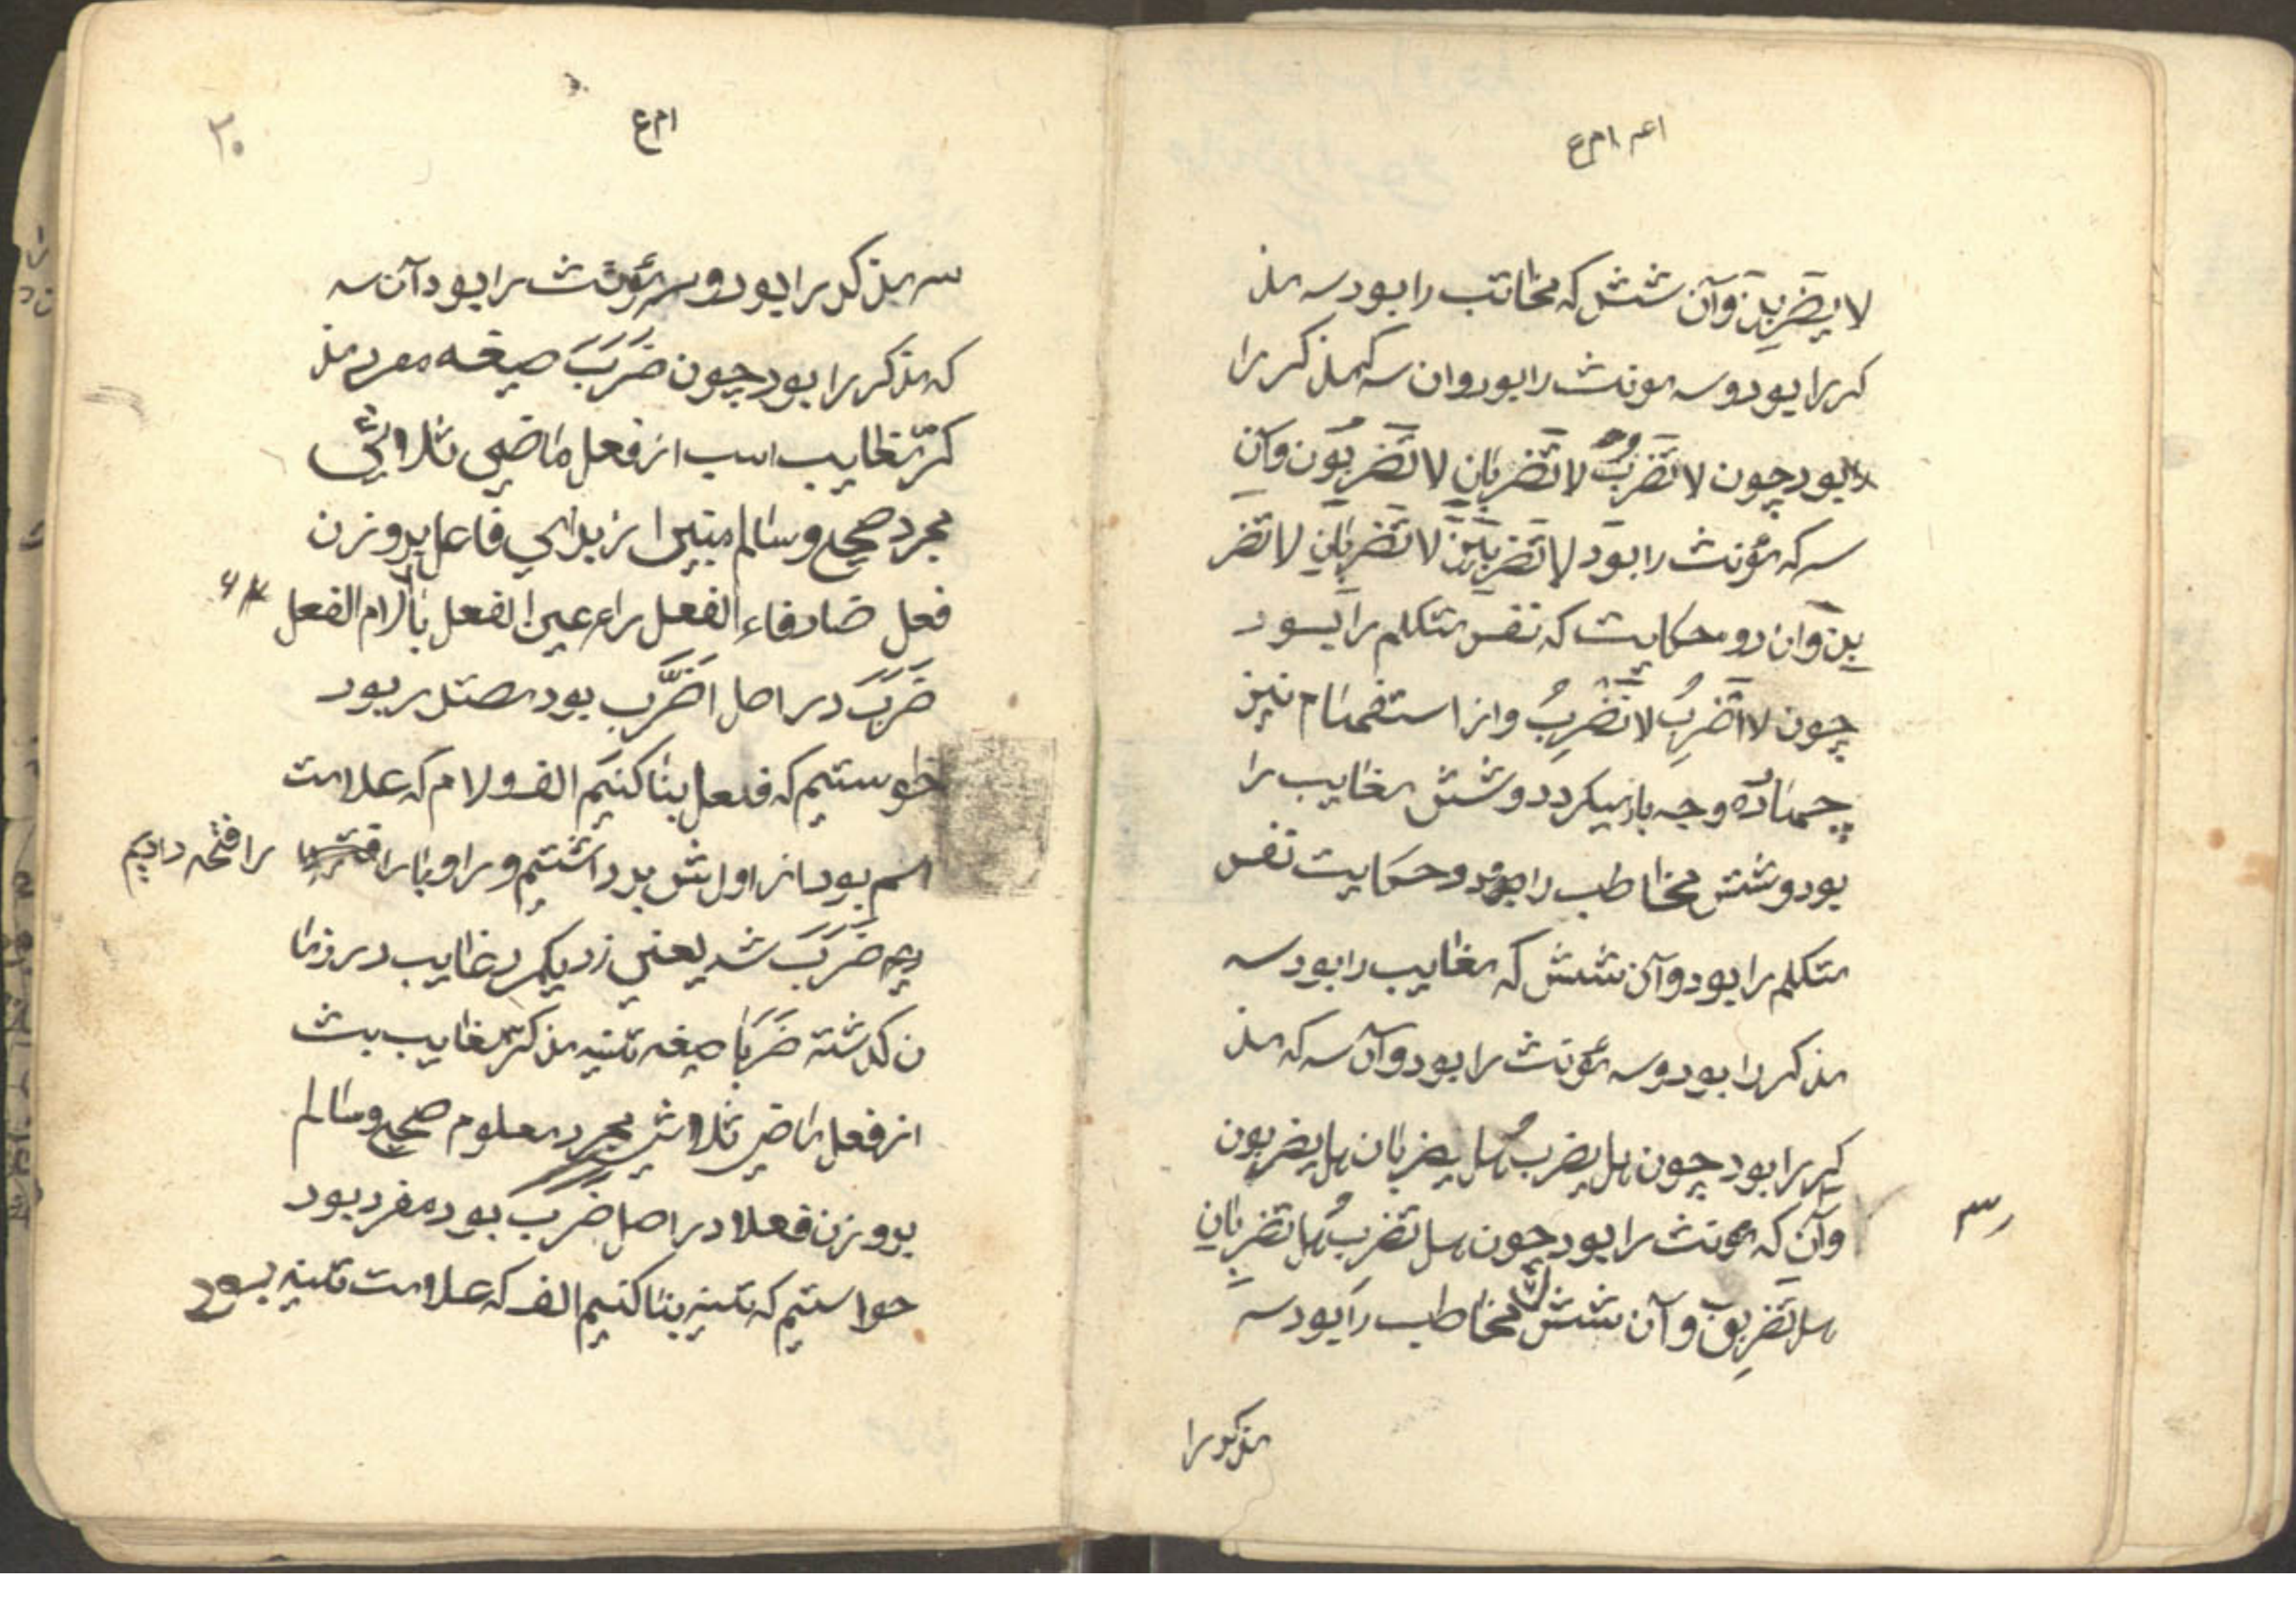 اعم ام ع
لا یَضْرِبْنَ وآن شش که مخاتب را بود سه مذ
کر را بود و سه مونث را بود وان سه که مذکر را
بود چون لا تَضْرِبُ لا تَضْرِبانِ لا تَضْرِبُون وآن
سه که مؤنث را بود لا تَضْرِبینَ لا تَضْرِبانِ لا تَضْرِ
بْنَ وان دو حکایت که نفس متکلم را بود
چون لا اَضْرِبُ لا نَضْرِبُ واز استفهام نیز
چهارده وجه باز میکردد و شش مغایب را
بود و شش مخاطب را بود و دو حکایت نفس
متکلم را بود و آن شش که مغایب را بود سه
مذکر را بود و سه مؤنث را بود و آن سه که مذ
کر را بود چون هل یضربُ هل یضربان هل یضربون
وآن که مونث را بود چون هل تضربُ هل تضربانِ
سه
هل تَضْرِبن وآن شش که مخاطب را بود سه
مذکر را
۲۰
ام ع
سه مذکر را بود و سه مؤنث را بود آن سه
که مذکر را بود چون ضَرَبَ صیغه مفرد مذ
کر مغایب است از فعل ماضی ثلاثی
مجرد صحیح و سالم مبنی از برای فاعل بر وزن
فعل ضاد فاء الفعل راء عین الفعل با لام الفعل
ضَرَبَ در اصل الضَّرب بود مصدر بود
خواستیم که فعل بنا کنیم الف و لام که علامت
اسم بود از اولش بر داشتیم و را و با را را فتحه دادیم
یم ضَرَبَ شد یعنی زد یکمرد غایب در زما
ن کذشته ضَرَبَا صیغه تثنیه مذکر مغایب بت
از فعل ماضی ثلاثی مجرد معلوم صحیح و سالم
بر وزن فعلا در اصل ضَرَبَ بود مفرد بود
خواستیم که تثنیه بنا کنیم الف که علامت تثنیه بود